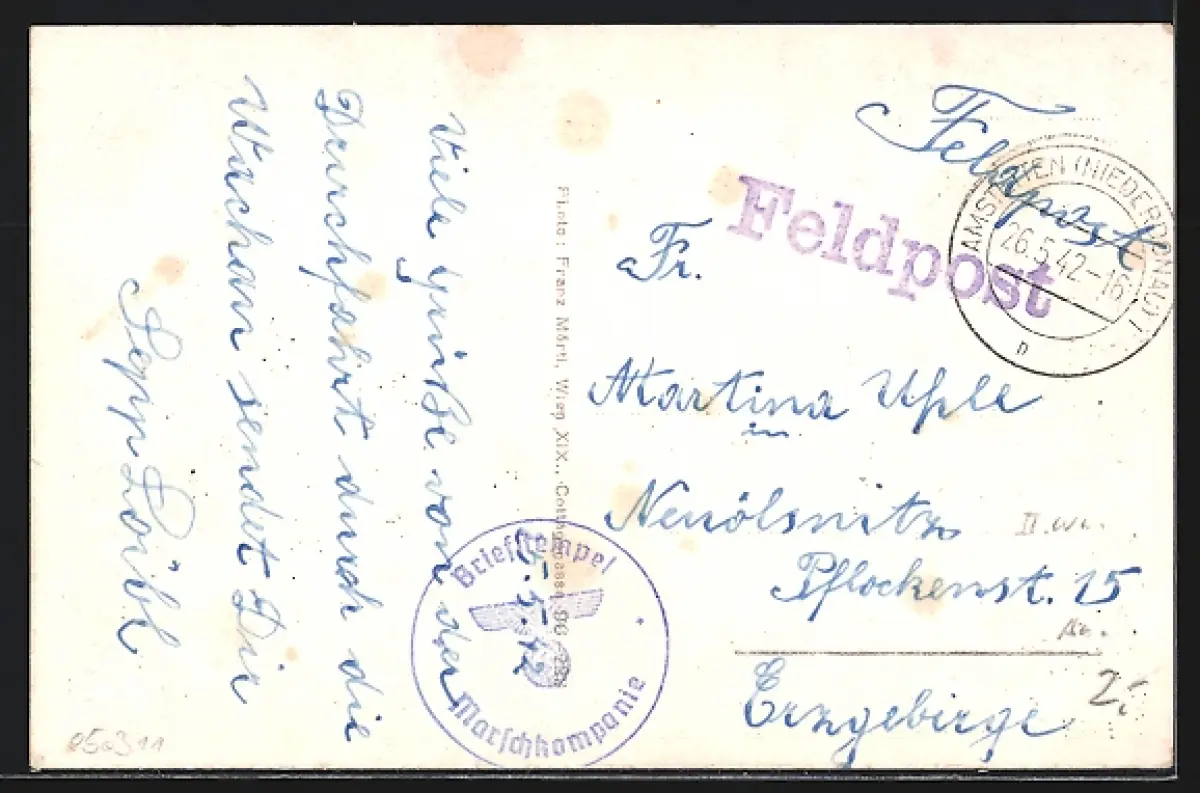 Viele Grüße von der
Durchfahrt durch die
Wachau sendet Dir
Sepp Loibl
5.5.42
Photo: Franz Mörtl, Wien XIX.,
Briefstempel
Marschkompanie
Feldpost
Feldpost
AMSTETTEN (NIEDERDONAU) 1
26.5.42-16
D
Fr.
Martina Uhle
in
Neuölsnitz
II. WK.
Pflockenst. 15
Erzgebirge
2.-
050311